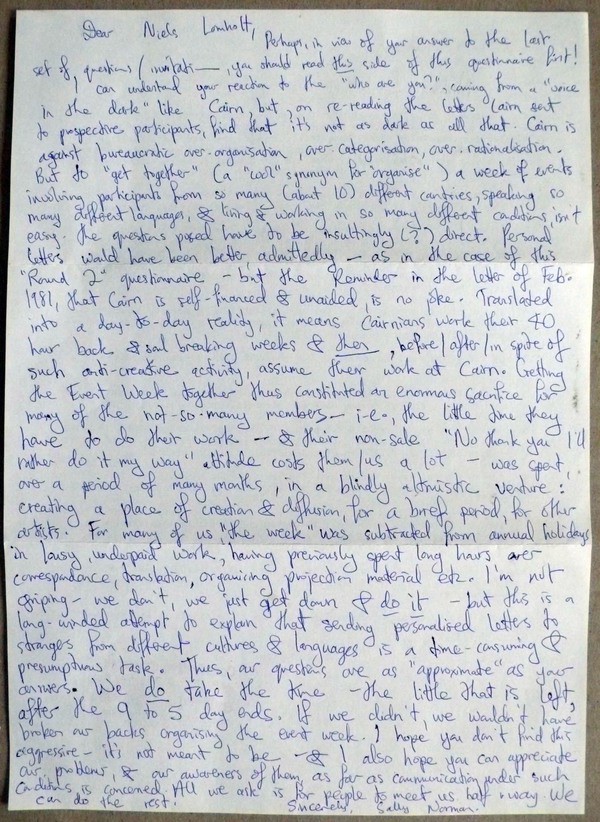 Dear Niels Lomholt,
Perhaps, in view of your answer to the last
set of questions / invitati—, you should read this side of this questionnaire first!
I can understand your reaction to the "who are you?", coming from a "voice
in the dark" like Cairn, but, on re-reading the letters Cairn sent
to prospective participants, find that it's not as dark as all that. Cairn is
against bureaucratic over-organisation, over-categorisation, over-rationalisation.
But to "get together" (a "cool" synonym for "organise") a week of events
involving participants from so many (about 10) different countries, speaking so
many different languages, & living & working in so many different conditions, isn't
easy. The questions posed have to be insultingly (?) direct. Personal
letters would have been better admittedly — as in the case of this
"Round 2" questionnaire — but the Reminder in the letter of Feb.
1981, that Cairn is self-financed & unaided, is no joke. Translated
into a day-to-day reality, it means Cairnians work their 40
hour back & soul breaking weeks & then, before/after/in spite of
such anti-creative activity, assume their work at Cairn. Getting
the Event Week together thus constituted an enormous sacrifice for
many of the not-so-many members — i.e., the little time they
have to do their work — & their non-sale "No thank you I'll
rather do it my way" attitude costs them/us a lot — was spent,
over a period of many months, in a blindly altruistic venture:
creating a place of creation & diffusion, for a brief period, for other
artists. For many of us "the week" was subtracted from annual holidays
in lousy, underpaid work, having previously spent long hours over
correspondance, translation, organising projection material etc. I'm not
griping — we don't, we just get down & do it — but this is a
long-winded attempt to explain that sending personalised letters to
strangers from different cultures & languages is a time-consuming &
presumptuous task. Thus, our questions are as "approximate" as your
answers. We do take the time — the little that is left,
after the 9 to 5 day ends. If we didn't, we wouldn't have
broken our backs organising the event week. I hope you don't find this
aggressive — it's not meant to be — & I also hope you can appreciate
our problems, & our awareness of them, as far as communication under such
conditions is concerned. All we ask is for people to meet us half-way. We
can do the rest. Sincerely, Sally Norman.